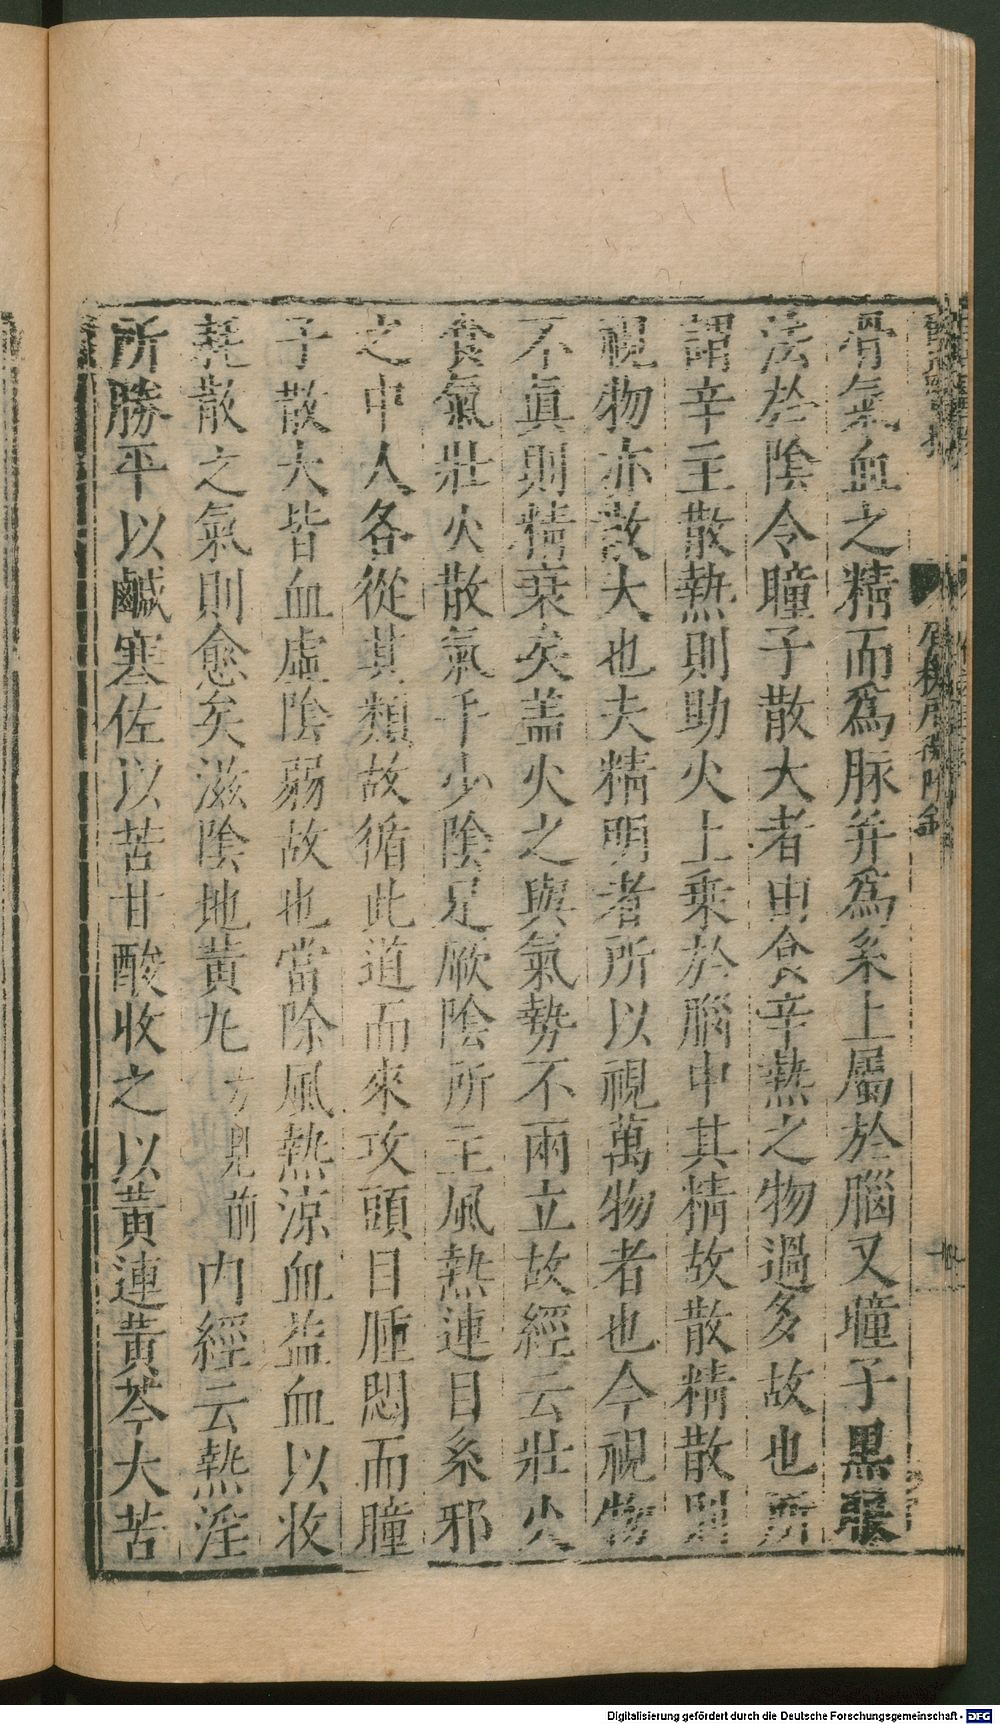 骨氣血之精而爲脉并爲系上屬於腦又瞳子黒眼
法於陰令瞳子散大者由食辛熱之物過多故也所
謂辛主散熱則助火上乗於腦中其精故散精散則
視物亦散大也夫精明者所以視萬物者也今視物
不眞則精衰矣盖火之與氣勢不兩立故經云壯火
食氣壯火散氣手少陰足厥陰所主風熱連目系邪
之中人各從其類故循此道而來攻頭目腫悶而瞳
子散大皆血虛陰弱故也當除風熱涼血益血以收
耗散之氣則愈矣滋陰地黄丸方見前内經云熱淫
所勝平以鹹寒佐以苦甘酸收之以黄連黄芩大苦
Digitalisierung gefördert durch die Deutsche Forschungsgemeinschaft - DFG